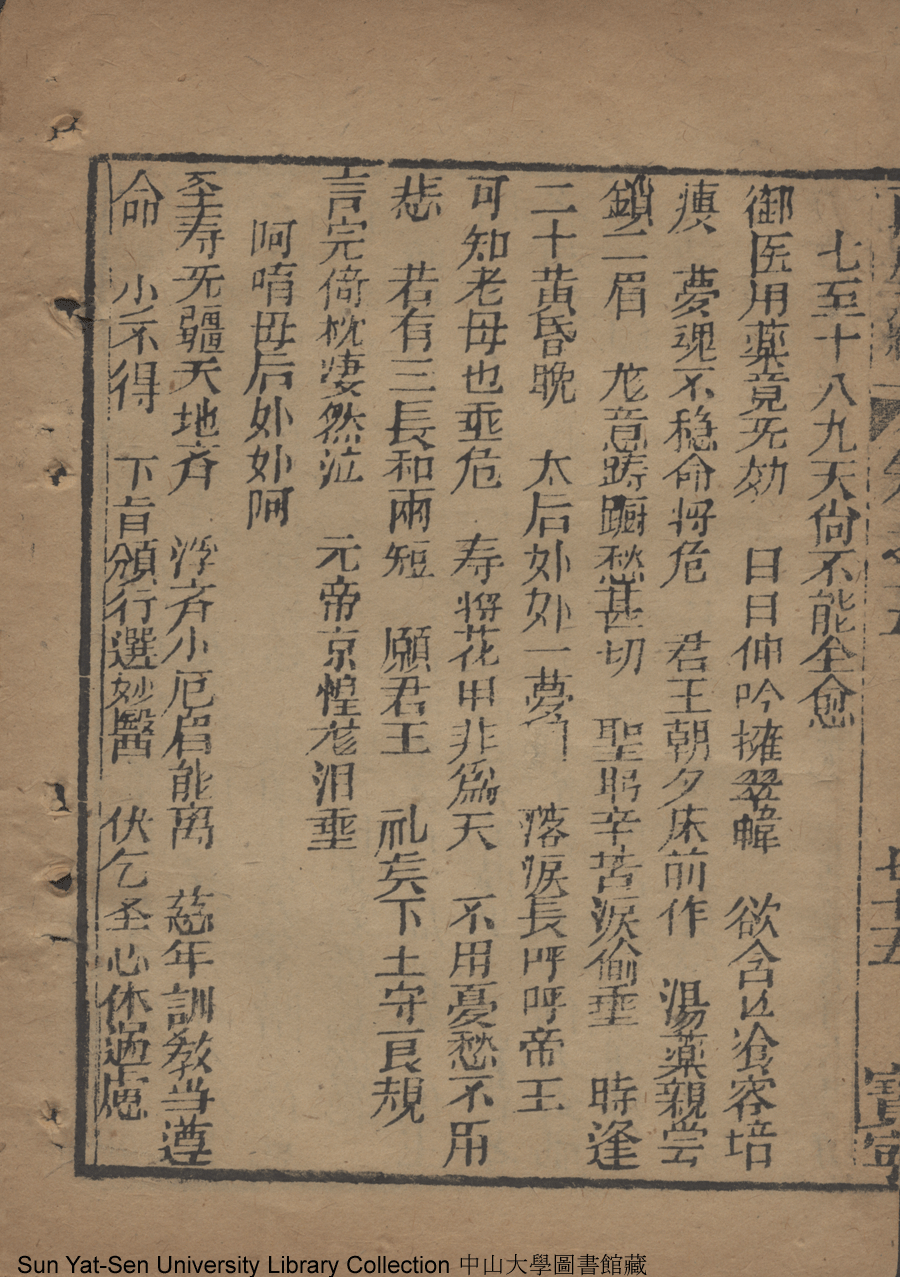 七十五
寳寧
七至十八九天尙不能全愈
御医用薬竟旡効　日日伸吟擁翠幃　欲含飡容培
瘐　夢魂不稳命将危　君王朝夕床前作　湯薬親尝
鎖二眉　尨意踌蹰愁甚切　聖躬辛苦淚偷垂　時逢
二十黄昏晚　太后妚妚一夢　落淚長呼呼帝王
可知老母也垂危　寿將花甲非為天　不用憂愁不用
悲　若有三長和兩短　願君王　礼矣下土守良規
言完倚枕凄然泣　元帝京惶尨泪垂
呵唷母后妚妚阿
圣寿旡疆天地斉　浮斉小厄启能离　慈年訓教当遵
命　小不得　下旨頒行選妙醫　伏乞圣心休過慮
Sun Yat-Sen University Library Collection 中山大學圖書館藏